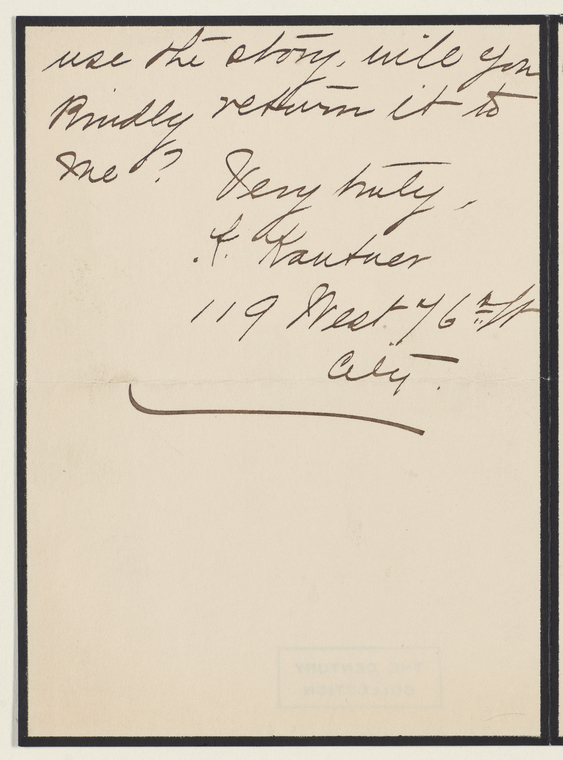 use the story, will you
kindly return it to
me? Very truly,
A. Kautner
119 West 76th St
City.
THE CENTURY
COLLECTION